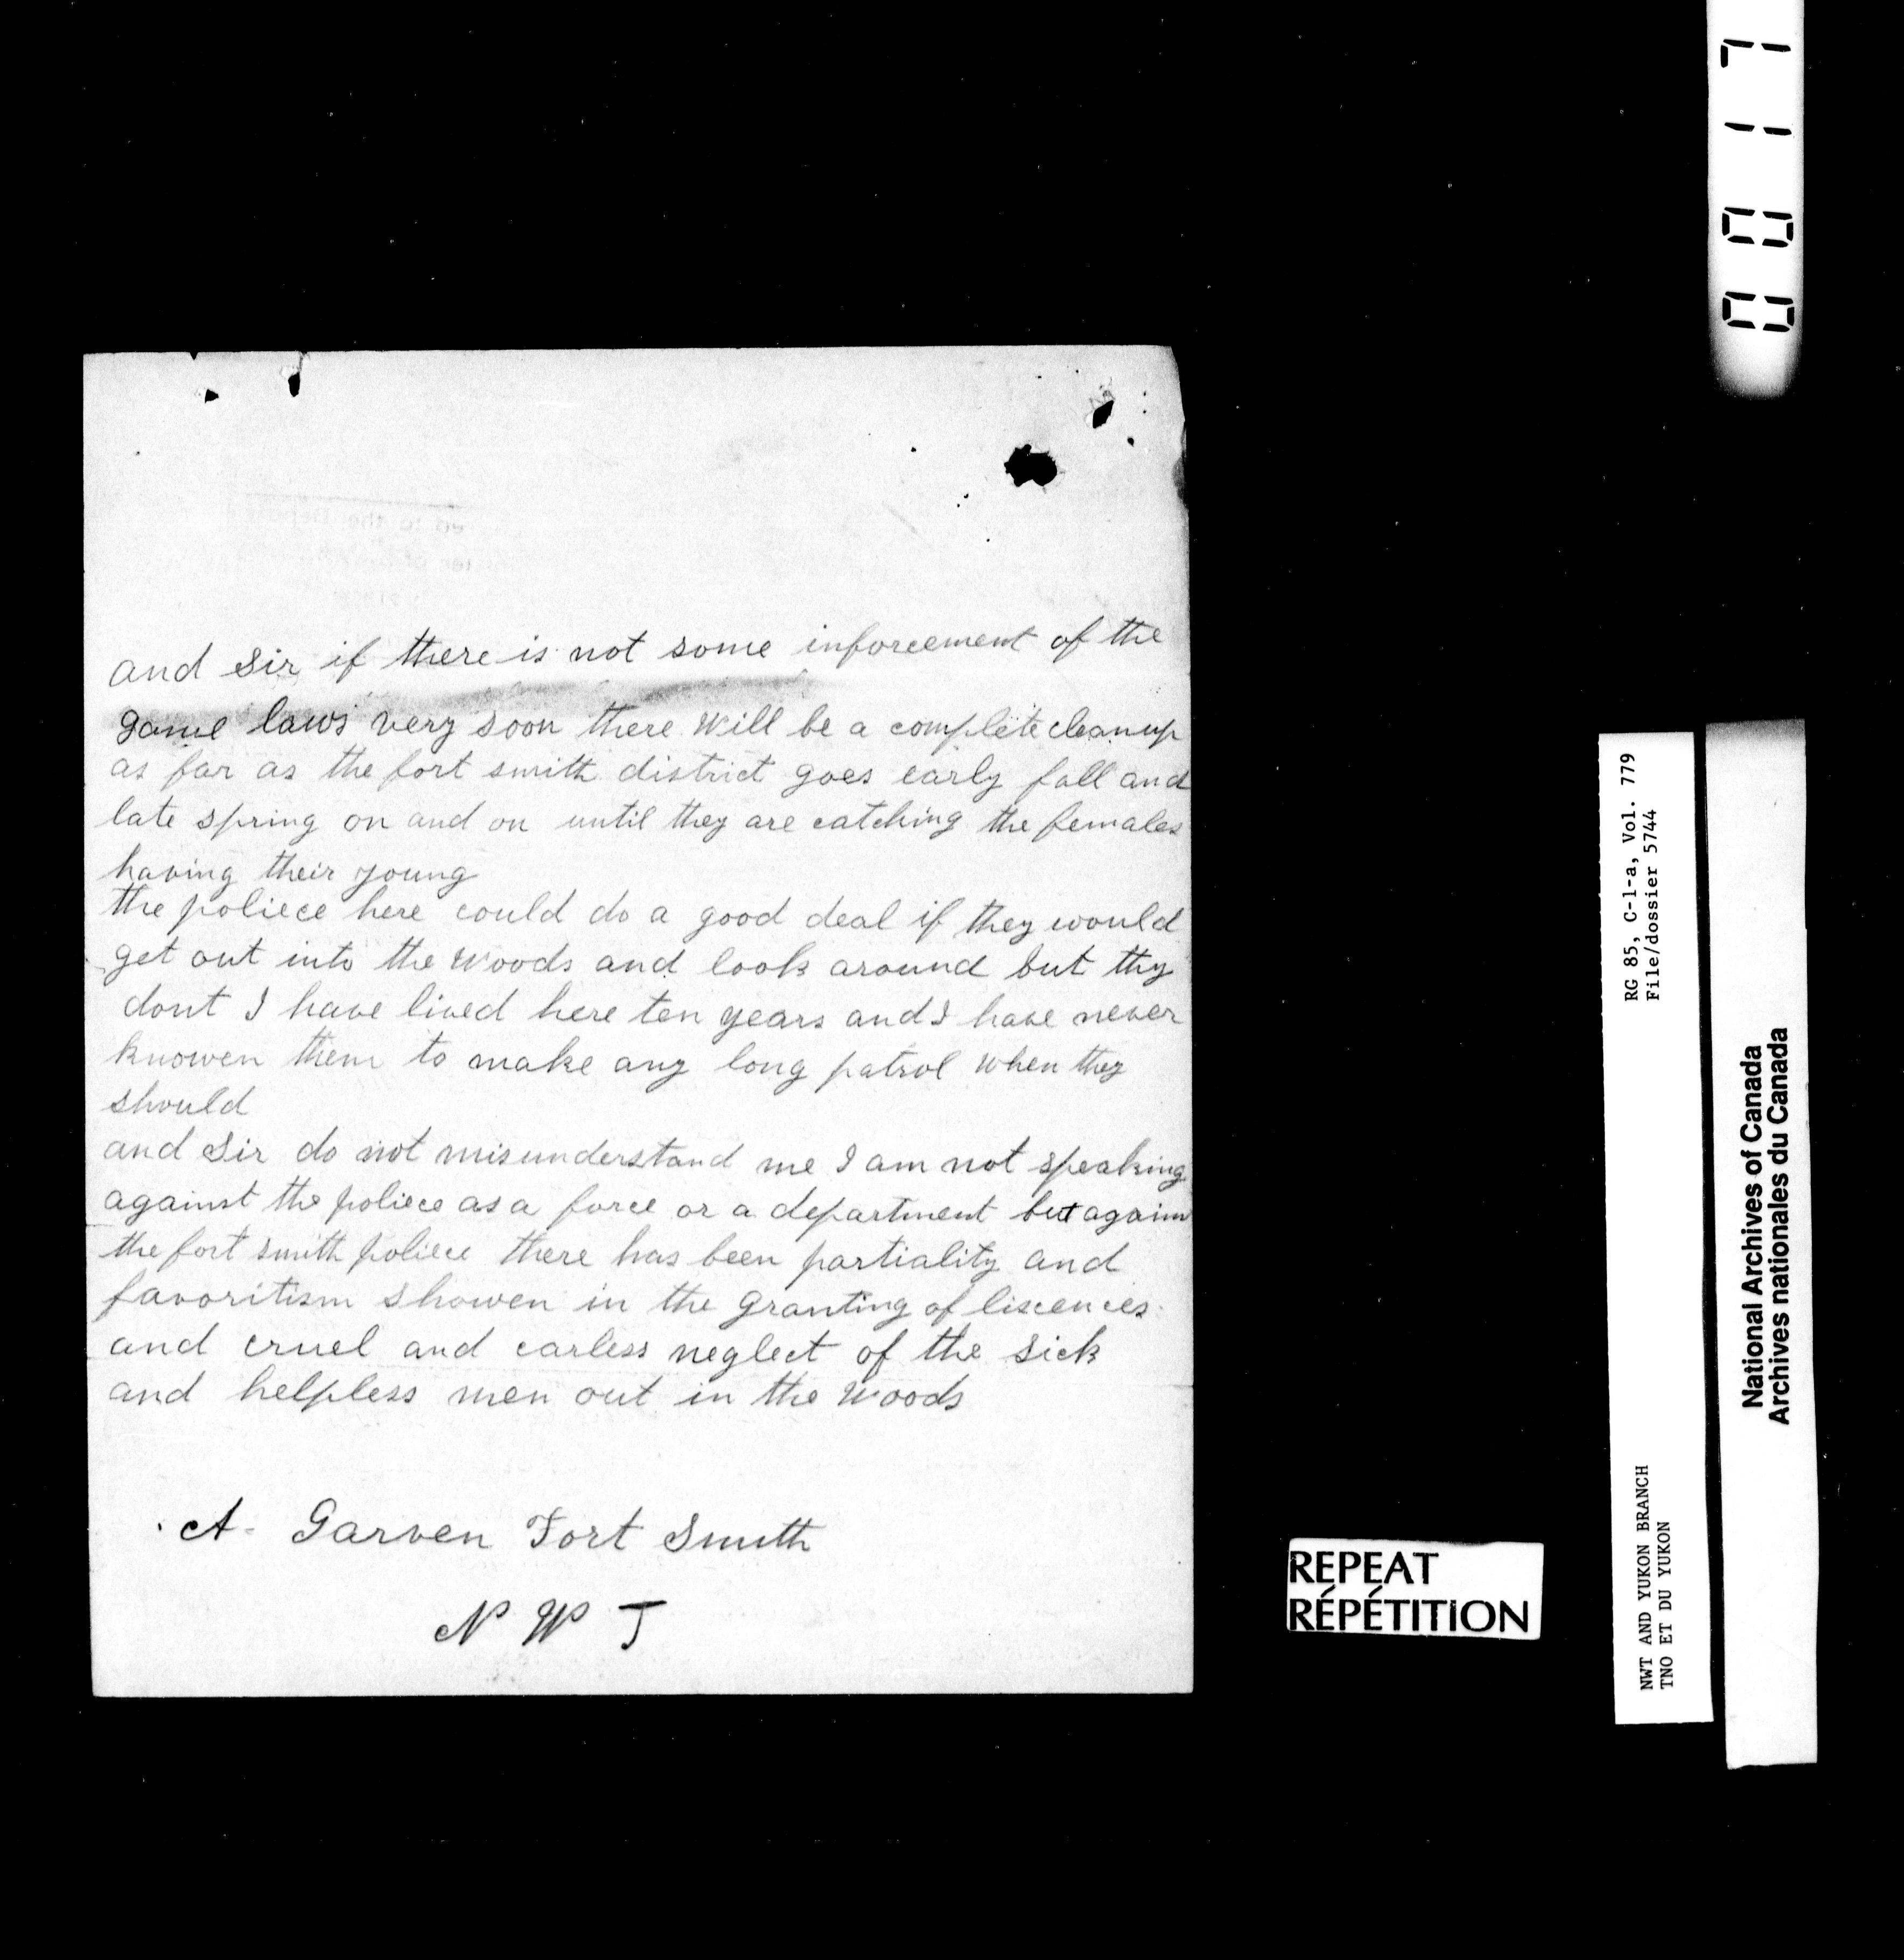 and Sir if there is not some inforcement of the
game laws very soon there will be a complete cleanup
as far as the fort smith district goes early fall and
late spring on and on until they are catching the females
having their young
the poliece here could do a good deal if they would
get out into the woods and look around but thy
dont I have lived here ten years and I have never
knowen them to make any long patrol when they
should
and Sir do not misunderstand me I am not speaking
against the poliece as a force or a department but against
the fort smith poliece there has been partiality and
favoritism showen in the granting of liscences
and cruel and carless neglect of the sick
and helpless men out in the woods
A. Garven Fort Smith
N W T
REPEAT
RÉPÉTITION
RG 85, C-1-a, Vol. 779
File/dossier 5744
NWT AND YUKON BRANCH
TNO ET DU YUKON
National Archives of Canada
Archives nationales du Canada
0017